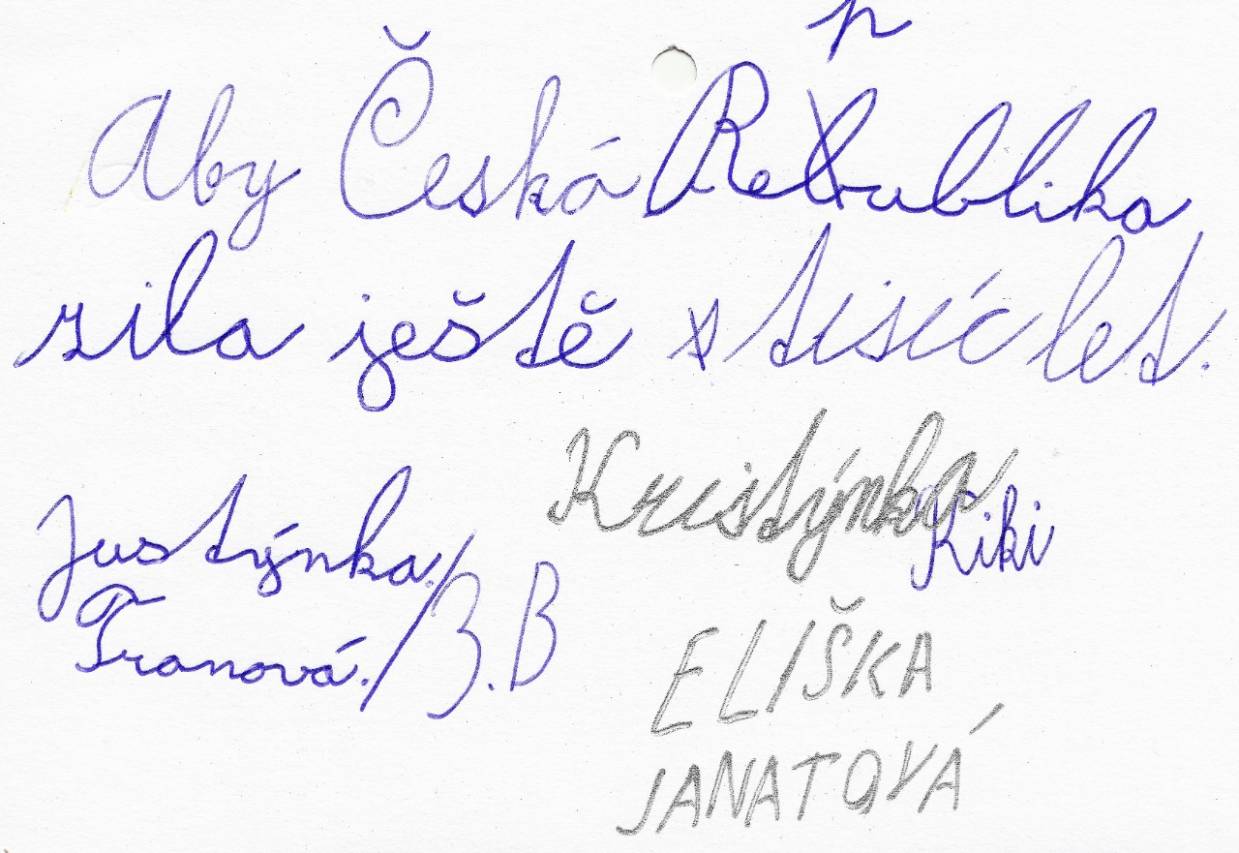 Aby Česká Republika
zila ještě tisíc let.
Kristýnka
Kiki
Justýnka
Tranová. / 3. B
ELIŠKA
JANATOVÁ